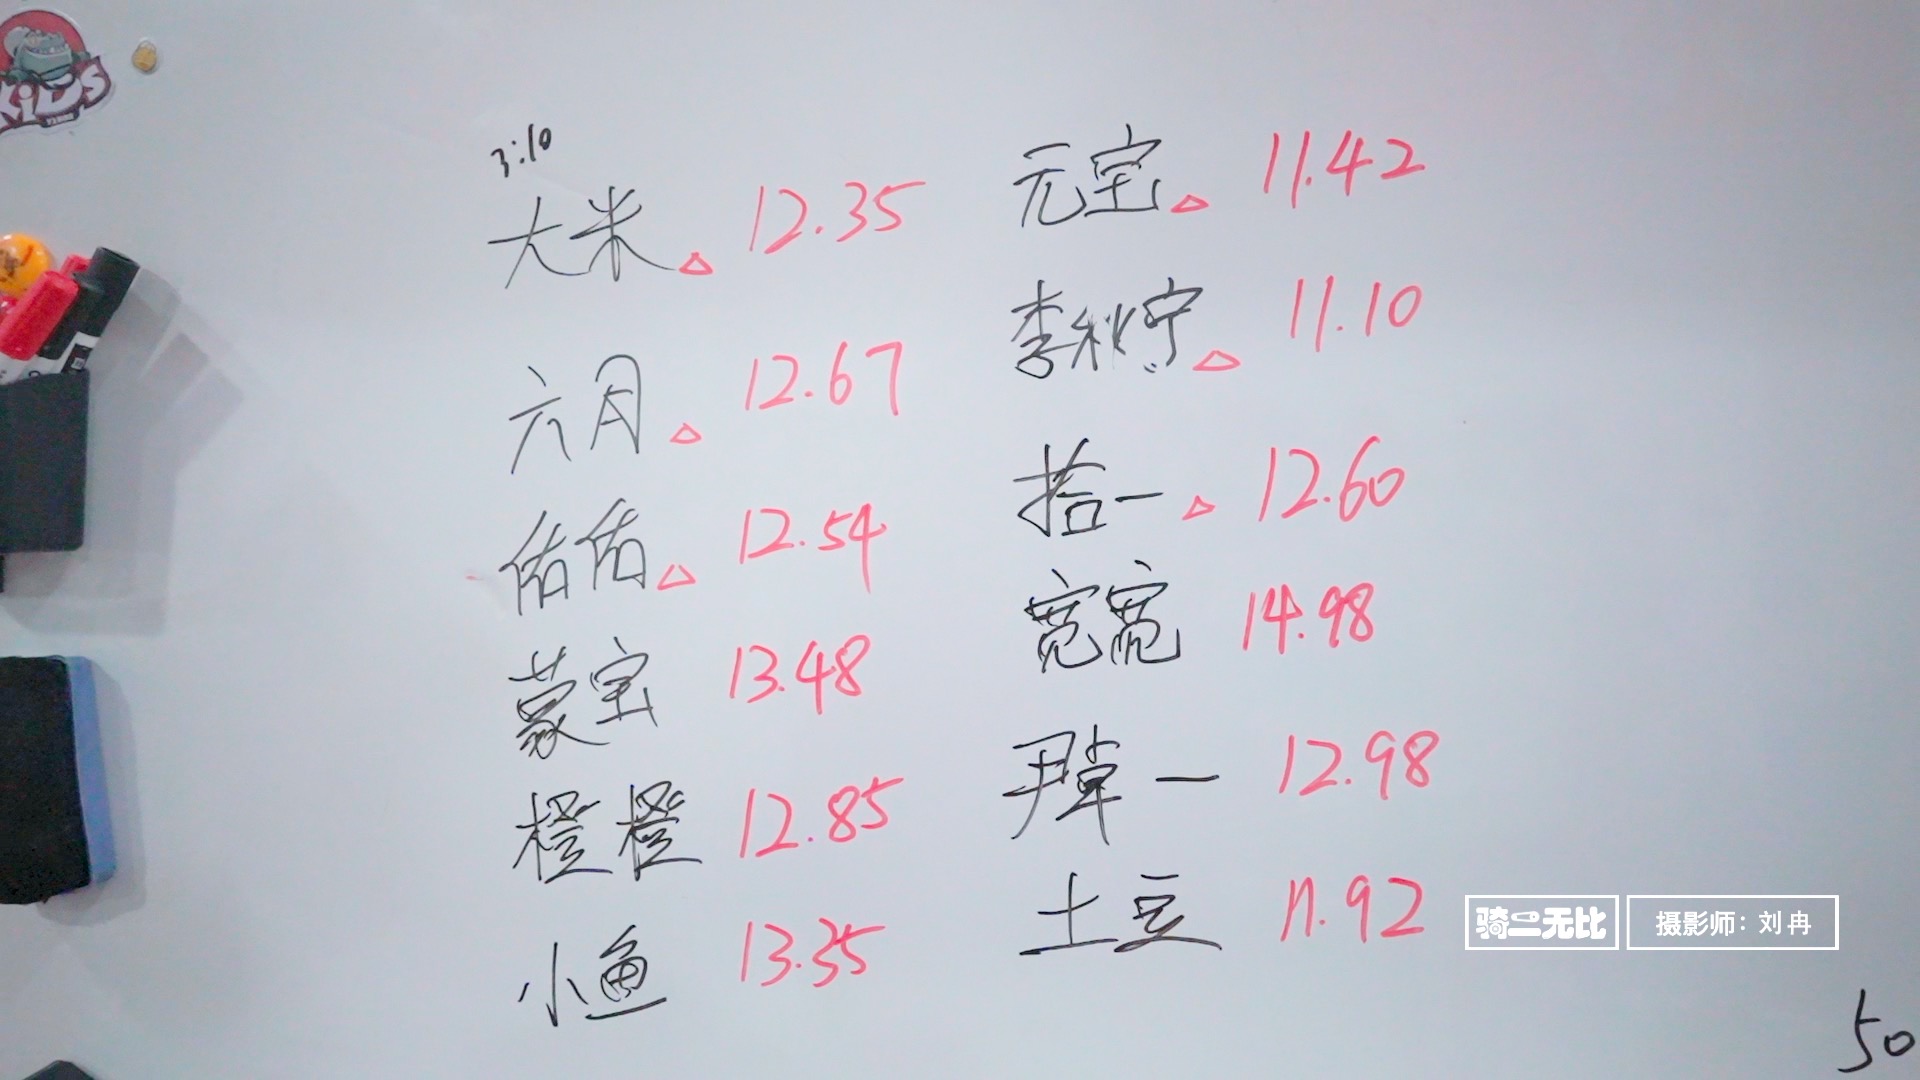 KiDS
3:10
大米△ 12.35
六月△ 12.67
佑佑△ 12.54
蒙宝 13.48
橙橙 12.85
小鱼 13.35
元宝△ 11.42
李秋宁△ 11.10
拾一△ 12.60
宽宽 14.98
尹卓一 12.98
土豆 11.92
骑二无比
摄影师：刘冉
50